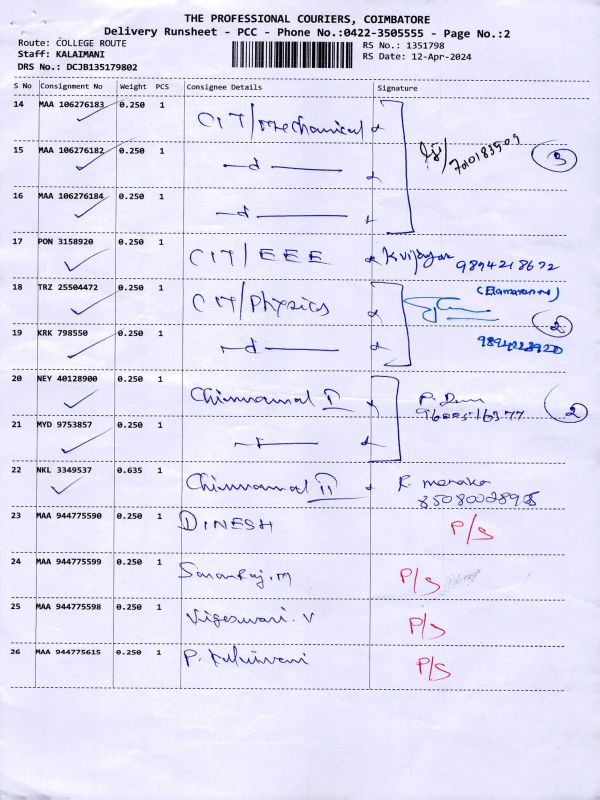 THE PROFESSIONAL COURIERS, COIMBATORE
Delivery Runsheet - PCC - Phone No.:0422-3505555 - Page No.:2
Route: COLLEGE ROUTE
RS No.: 1351798
Staff: KALAIMANI
RS Date: 12-Apr-2024
DRS No.: DCJB135179802
S No Consignment No Weight PCS Consignee Details Signature
14 MAA 106276183 0.250 1 CIT/Mechanical
15 MAA 106276182 0.250 1 3
16 MAA 106276184 0.250 1
17 PON 3158920 0.250 1 CIT/EEE 9894218672
18 TRZ 25504472 0.250 1 CIT/Physics 2
19 KRK 798550 0.250 1
20 NEY 40128900 0.250 1 Chinnamal I 2
21 MYD 9753857 0.250 1
22 NKL 3349537 0.635 1 Chinnamal II R. menaka
23 MAA 944775590 0.250 1 DINESH P/S
24 MAA 944775599 0.250 1 P/S
25 MAA 944775598 0.250 1 P/S
26 MAA 944775615 0.250 1 P/S